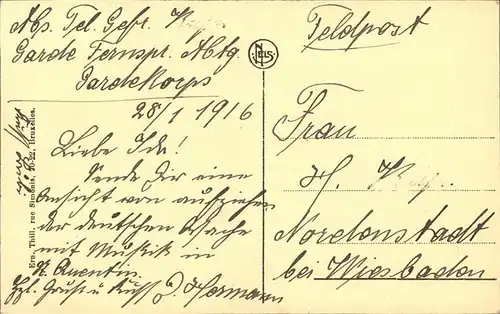 Abs. Tel. Gefr. K
Garde Fernspr. Abtg.
Gardekorps
28/1 1916
Liebe Ida!
Sende Dir eine
Ansicht von aufziehen
der deutschen Wache
mit Musik in
St. Quentin.
Hzl. Gruß u. Kuß D. Hermann
Ern. Thill, rue Simonis, 20-22, Bruxelles.
NELS
Feldpost
Frau
H. K
Nordenstadt
bei Wiesbaden